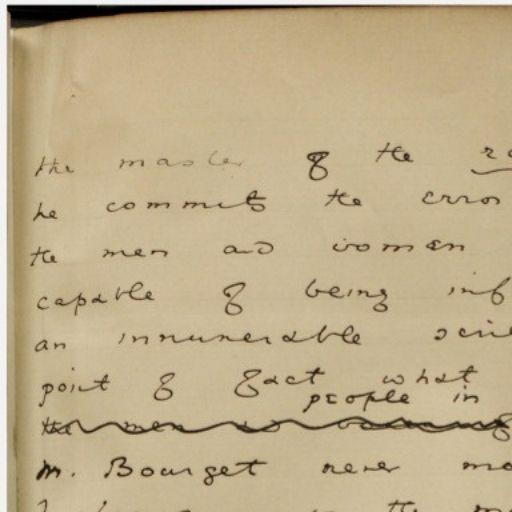 the master of the
he commits the error
the men and women
capable of being inf
an innumerable serie
point of fact what
people in
the men
M. Bourget never mo
the